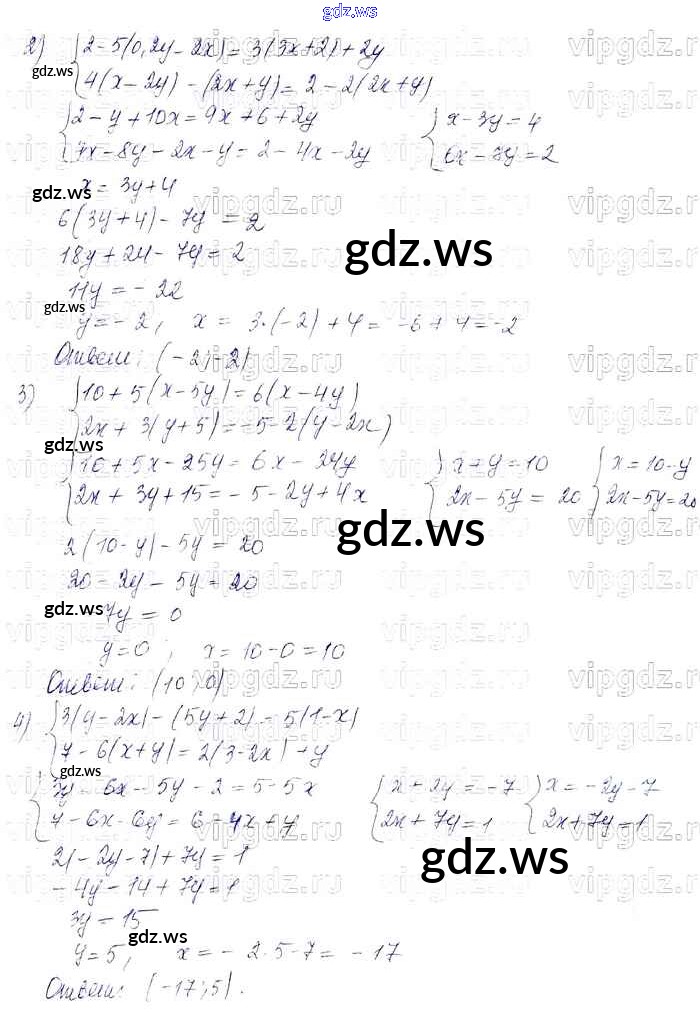 gdz.ws
2) { 2 - 5(0,2y - 2x) = 3(3x+2) + 2y
gdz.ws
{ 4(x - 2y) - (2x + y) = 2 - 2(2x + y)
{ 2 - y + 10x = 9x + 6 + 2y { x - 3y = 4
{ 4x - 8y - 2x - y = 2 - 4x - 2y { 6x - 7y = 2
x = 3y + 4
gdz.ws
6(3y + 4) - 7y = 2
gdz.ws
18y + 24 - 7y = 2
11y = - 22
y = - 2, x = 3·(-2) + 4 = -6 + 4 = -2
Ответ: (-2; -2)
3) { 10 + 5(x - 5y) = 6(x - 4y)
{ 2x + 3(y + 5) = -5 - 2(y - 2x)
gdz.ws
{ 10 + 5x - 25y = 6x - 24y { x + y = 10 { x = 10 - y
{ 2x + 3y + 15 = - 5 - 2y + 4x { 2x - 5y = 20 { 2x - 5y = 20
gdz.ws
2(10 - y) - 5y = 20
20 - 2y - 5y = 20
gdz.ws
7y = 0
y = 0, x = 10 - 0 = 10
Ответ: (10; 0)
4) { 3(y - 2x) - (5y + 2) = 5(1 - x)
{ 7 - 6(x + y) = 2(3 - 2x) + y
gdz.ws
{ 3y - 6x - 5y - 2 = 5 - 5x { x + 2y = -7 { x = -2y - 7
{ 7 - 6x - 6y = 6 - 4x + y { 2x + 7y = 1 { 2x + 7y = 1
gdz.ws
2(- 2y - 7) + 7y = 1
- 4y - 14 + 7y = 1
3y = 15
gdz.ws
y = 5, x = - 2·5 - 7 = - 17
Ответ: (-17; 5).
vipgdz.ru